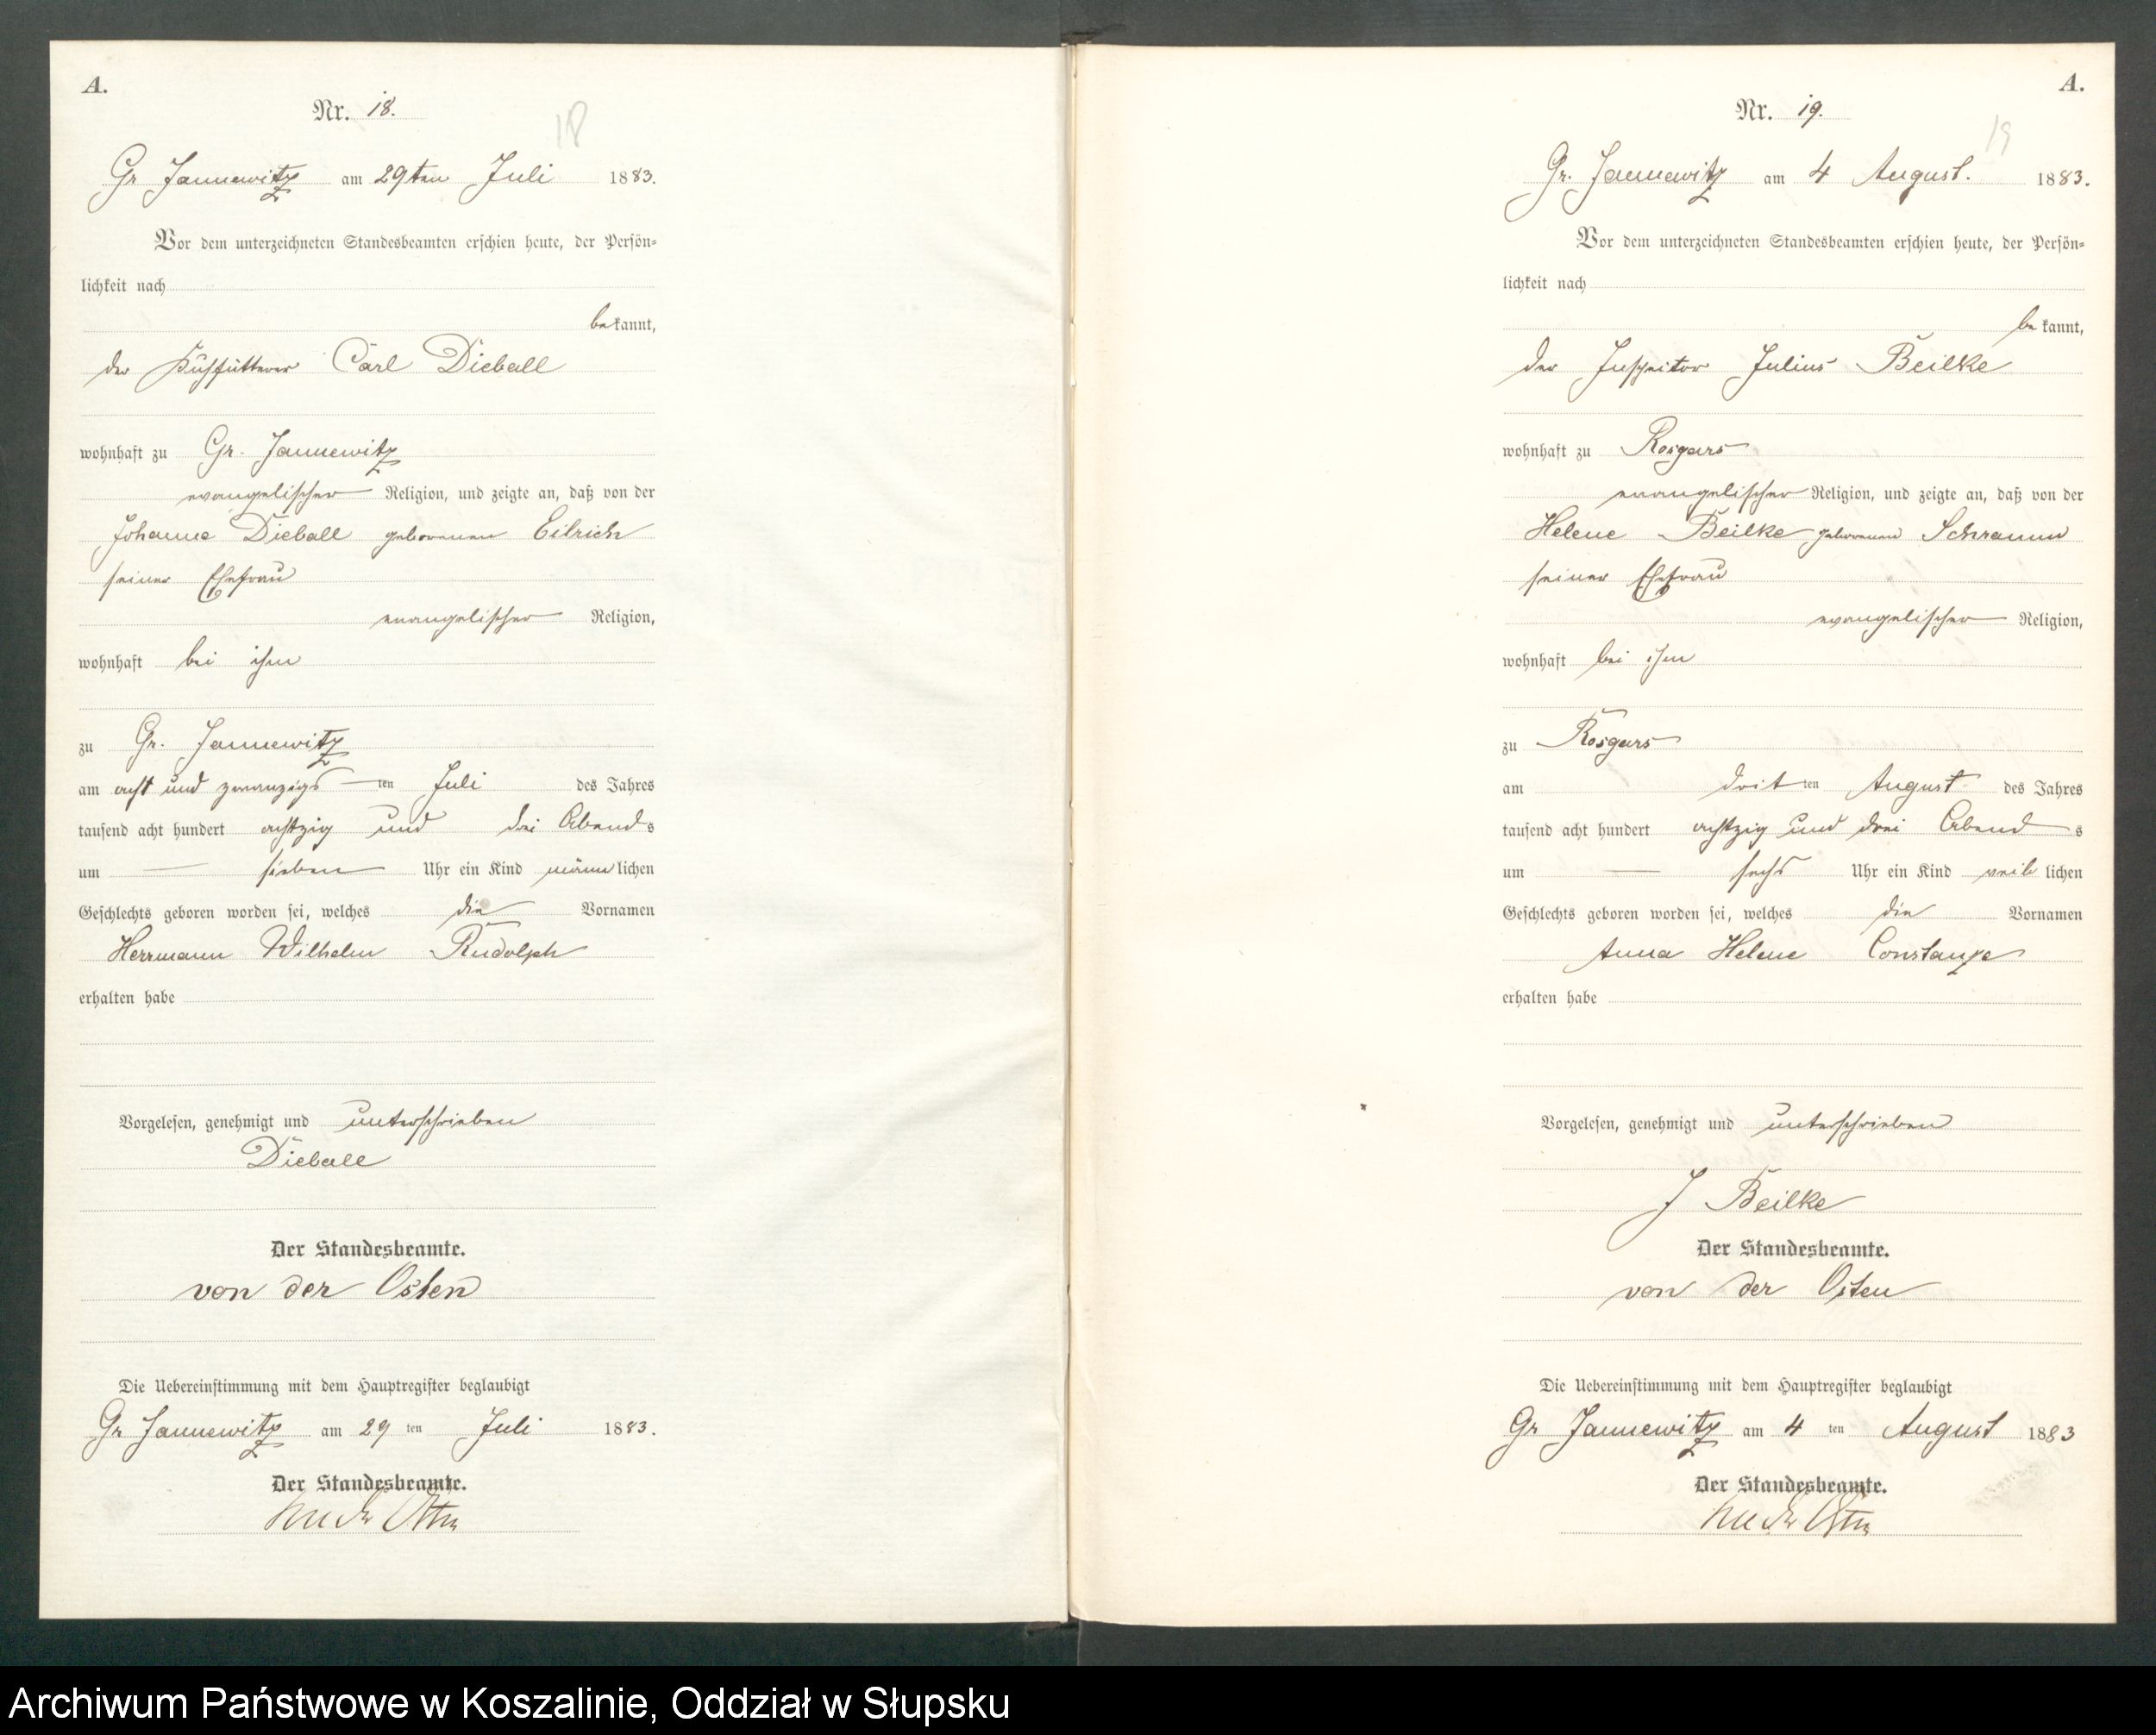 A.
Nr. 18.
18
Gr Jannewitz am 29ten Juli 1883.
Vor dem unterzeichneten Standesbeamten erschien heute, der Persön-
lichkeit nach
bekannt,
der Kuhfütterer Carl Dieball
wohnhaft zu Gr. Jannewitz
evangelischer Religion, und zeigte an, daß von der
Johanne Dieball geborenen Eilrich
seiner Ehefrau
evangelischer Religion,
wohnhaft bei ihm
zu Gr. Jannewitz
am acht und zwanzigsten Juli des Jahres
tausend acht hundert achtzig und drei Abends
um sieben Uhr ein Kind männlichen
Geschlechts geboren worden sei, welches die Vornamen
Herrmann Wilhelm Rudolph
erhalten habe
Vorgelesen, genehmigt und unterschrieben
Dieball
Der Standesbeamte.
von der Osten
Die Uebereinstimmung mit dem Hauptregister beglaubigt
Gr Jannewitz am 29 ten Juli 1883.
Der Standesbeamte.
von der Osten
A.
Nr. 19.
19
Gr. Jannewitz am 4 August. 1883.
Vor dem unterzeichneten Standesbeamten erschien heute, der Persön-
lichkeit nach
bekannt,
der Inspector Julius Beilke
wohnhaft zu Rosgars
evangelischer Religion, und zeigte an, daß von der
Helene Beilke geborenen Schramm
seiner Ehefrau
evangelischer Religion,
wohnhaft bei ihm
zu Rosgars
am dritten August des Jahres
tausend acht hundert achtzig und drei Abends
um sechs Uhr ein Kind weiblichen
Geschlechts geboren worden sei, welches die Vornamen
Anna Helene Constanze
erhalten habe
Vorgelesen, genehmigt und unterschrieben
J Beilke
Der Standesbeamte.
von der Osten
Die Uebereinstimmung mit dem Hauptregister beglaubigt
Gr Jannewitz am 4 ten August 1883
Der Standesbeamte.
von der Osten
Archiwum Państwowe w Koszalinie, Oddział w Słupsku